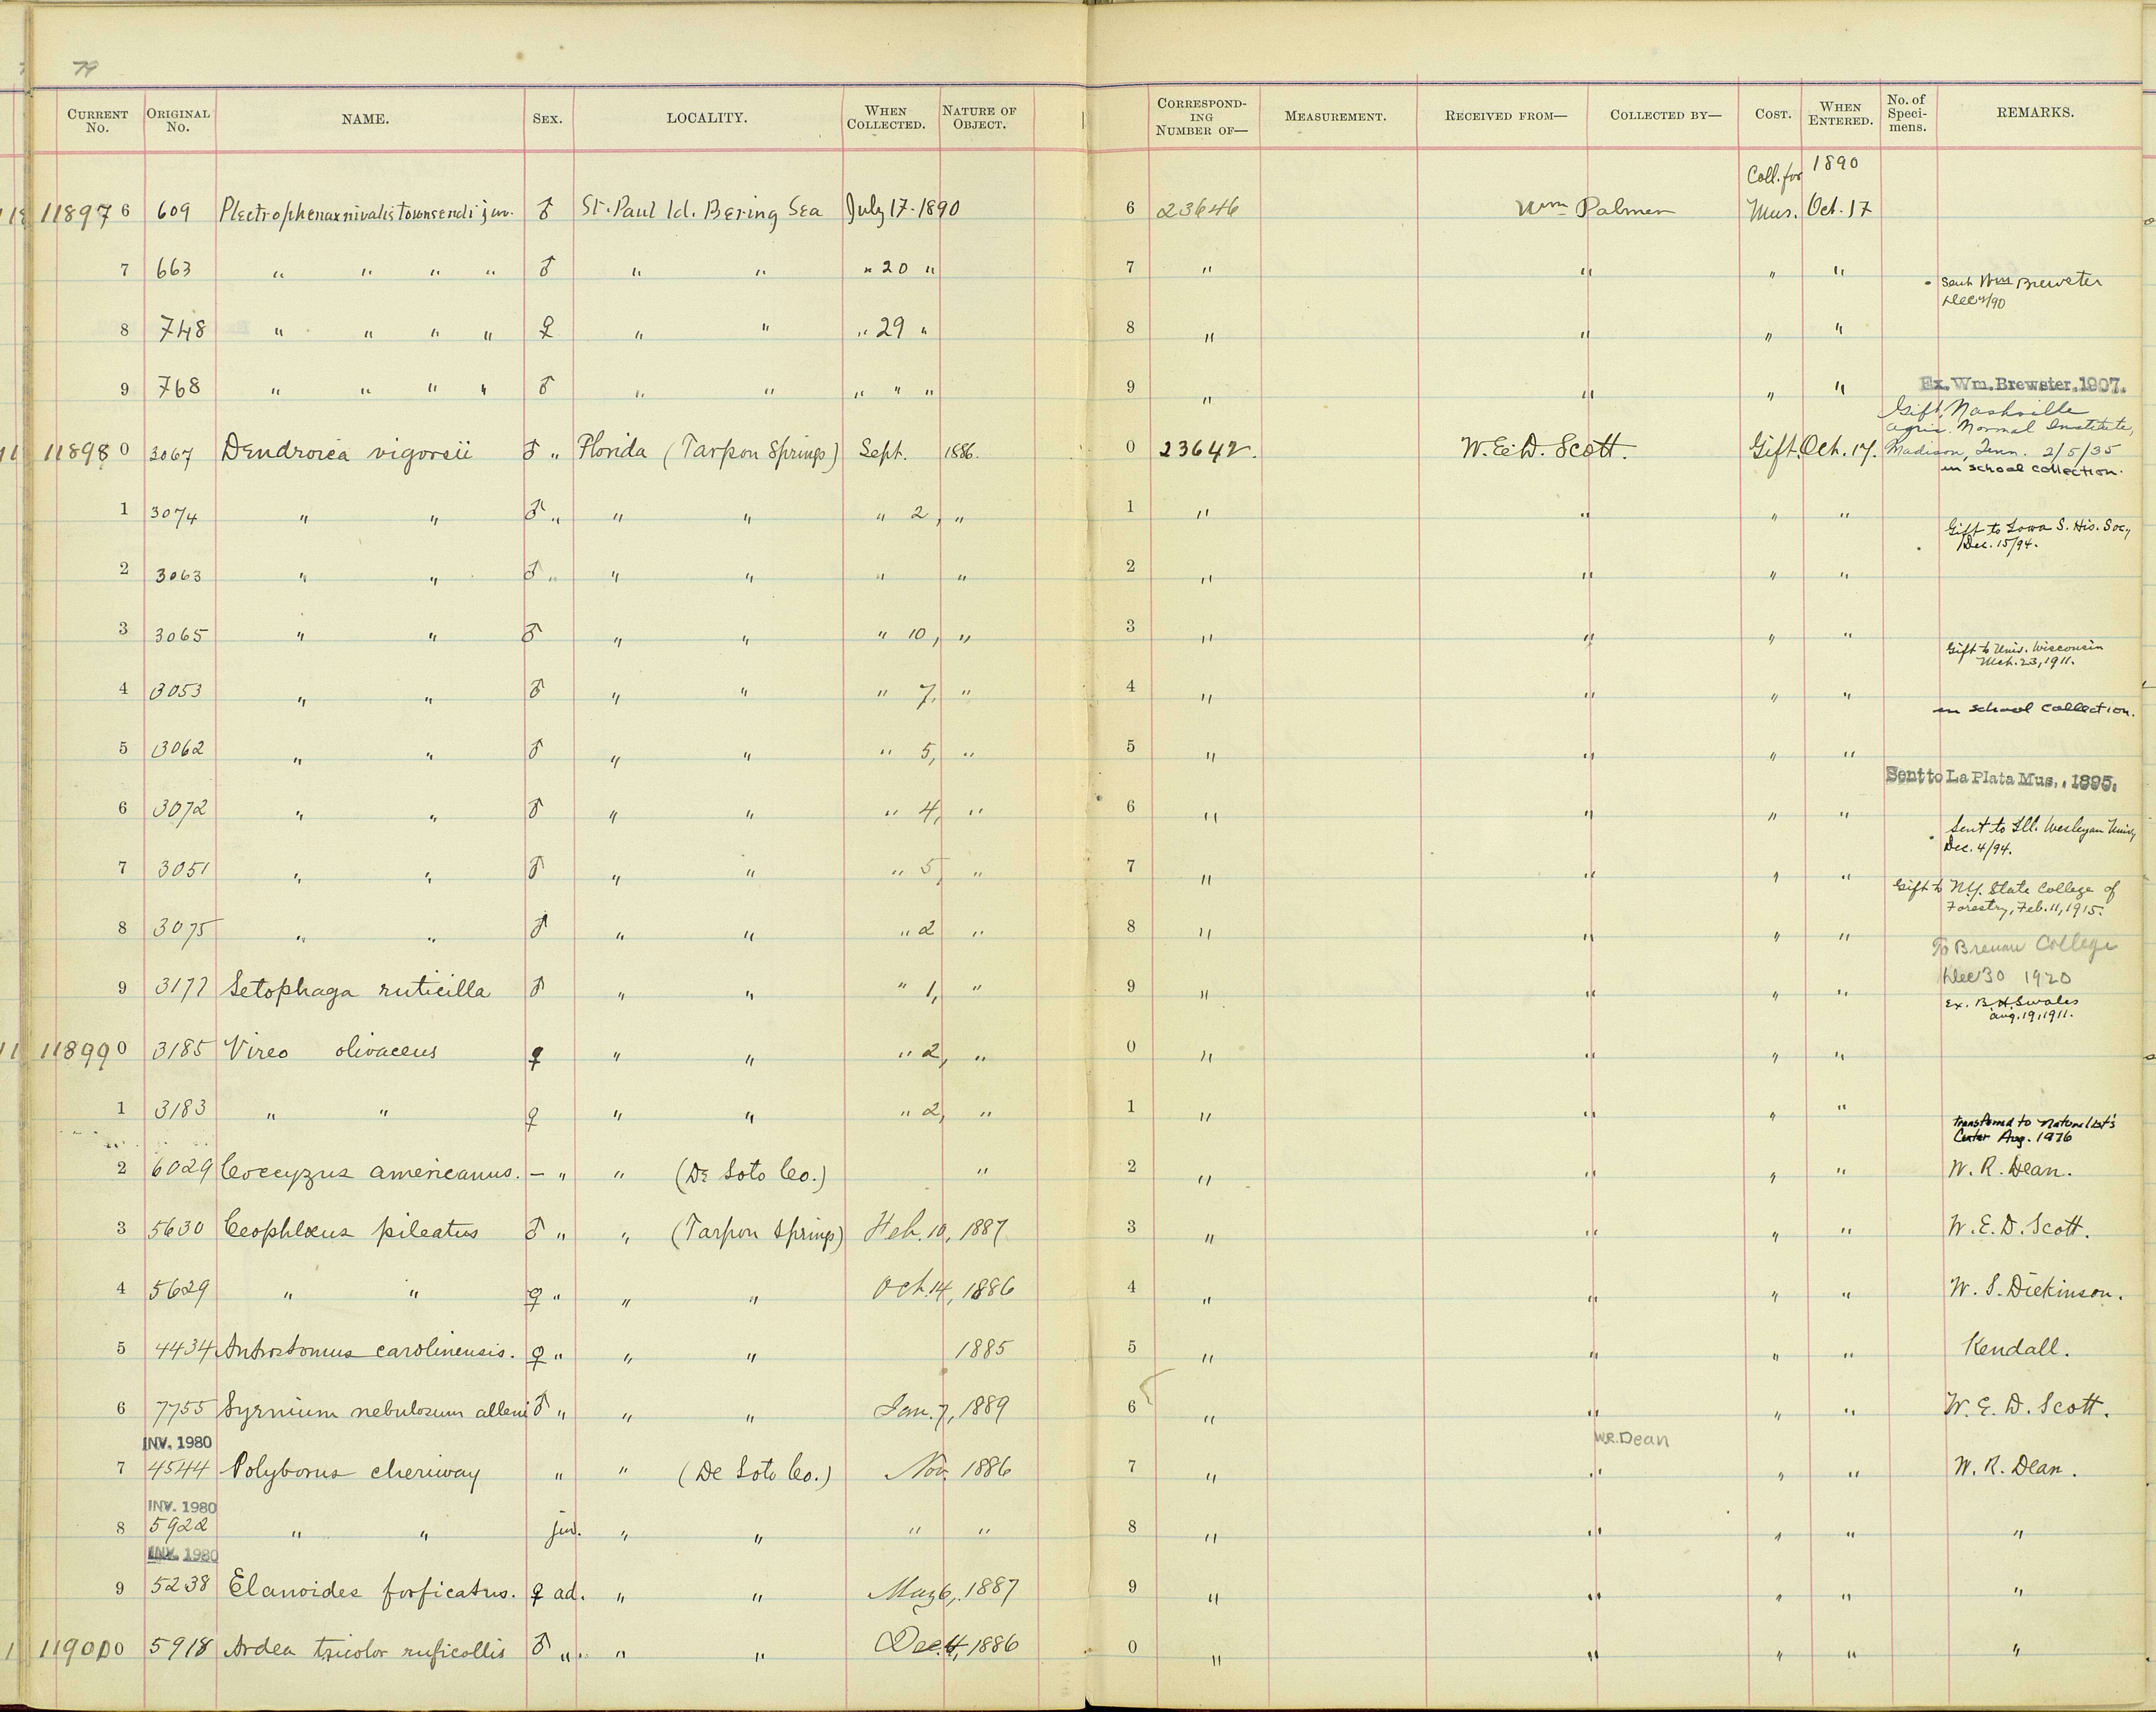 79
CURRENT No. ORIGINAL No. NAME. SEX. LOCALITY. WHEN COLLECTED. NATURE OF OBJECT. CORRESPONDING NUMBER OF— MEASUREMENT. RECEIVED FROM— COLLECTED BY— COST. WHEN ENTERED. No. of Specimens. REMARKS.
Coll. for 1890
11897 6 609 Plectrophenax nivalis townsendi juv. ♂ St. Paul Id. Bering Sea July 17. 1890 6 23646 Wm Palmer Mus. Oct. 17
7 663 " " " " ♂ " " " 20 " 7 " " " "
Sent Wm Brewster
Dec /90
8 748 " " " " ♀ " " " 29 " 8 " " " "
9 768 " " " " ♂ " " " " " 9 " " " " Ex. Wm. Brewster, 1907.
Gift, Nashville
Agric. Normal Institute,
11898 0 3067 Dendroica vigorsii ♂ " Florida (Tarpon Springs) Sept. 1886. 0 23642. W. E. D. Scott. Gift. Oct. 17. Madison, Tenn. 2/5/35
in school collection.
1 3074 " " ♂ " " " " 2, " 1 " " " "
Gift to Iowa S. His. Soc,
Dec. 15/94.
2 3063 " " ♂ " " " " " 2 " " " "
3 3065 " " ♂ " " " 10, " 3 " " " "
Gift to Univ. Wisconsin
Mch. 23, 1911.
4 3053 " " ♂ " " " 7, " 4 " " " "
in school collection.
5 3062 " " ♂ " " " 5, " 5 " " " "
Sent to La Plata Mus., 1895.
6 3072 " " ♂ " " " 4, " 6 " " " "
Sent to Ill. Wesleyan Univ,
Dec. 4/94.
7 3051 " " ♂ " " " 5, " 7 " " " "
Gift to N.Y. State College of
Forestry, Feb. 11, 1915.
8 3075 " " ♂ " " " 2 " 8 " " " "
To Brenau College
Dec 30 1920
9 3177 Setophaga ruticilla ♂ " " " 1, " 9 " " " "
Ex. B. H. Swales
Aug. 19, 1911.
11899 0 3185 Vireo olivaceus ♀ " " " 2, " 0 " " " "
1 3183 " " ♀ " " " 2, " 1 " " " "
Transferred to Naturalist's
Center Aug. 1976
2 6029 Coccyzus americanus. – " " (De Soto Co.) " 2 " " " " W. R. Dean.
3 5630 Ceophlœus pileatus ♂ " " (Tarpon Springs) Feb. 10, 1887 3 " " " " W. E. D. Scott.
4 5629 " " ♀ " " " Oct. 14, 1886 4 " " " " W. S. Dickinson.
5 4434 Antrostomus carolinensis. ♀ " " " 1885 5 " " " " Kendall.
6 7755 Syrnium nebulosum alleni ♂ " " " Jan. 7, 1889 6 " " " " W. E. D. Scott.
INV. 1980 W.R. Dean
7 4544 Polyborus cheriway " " (De Soto Co.) Nov. 1886 7 " " " " W. R. Dean.
INV. 1980
8 5922 " " juv. " " " " 8 " " " " "
INV. 1980
9 5238 Elanoides forficatus. ♀ ad. " " May 6, 1887 9 " " " " "
11900 0 5918 Ardea tricolor ruficollis ♂ " " " Dec. 4, 1886 0 " " " " "